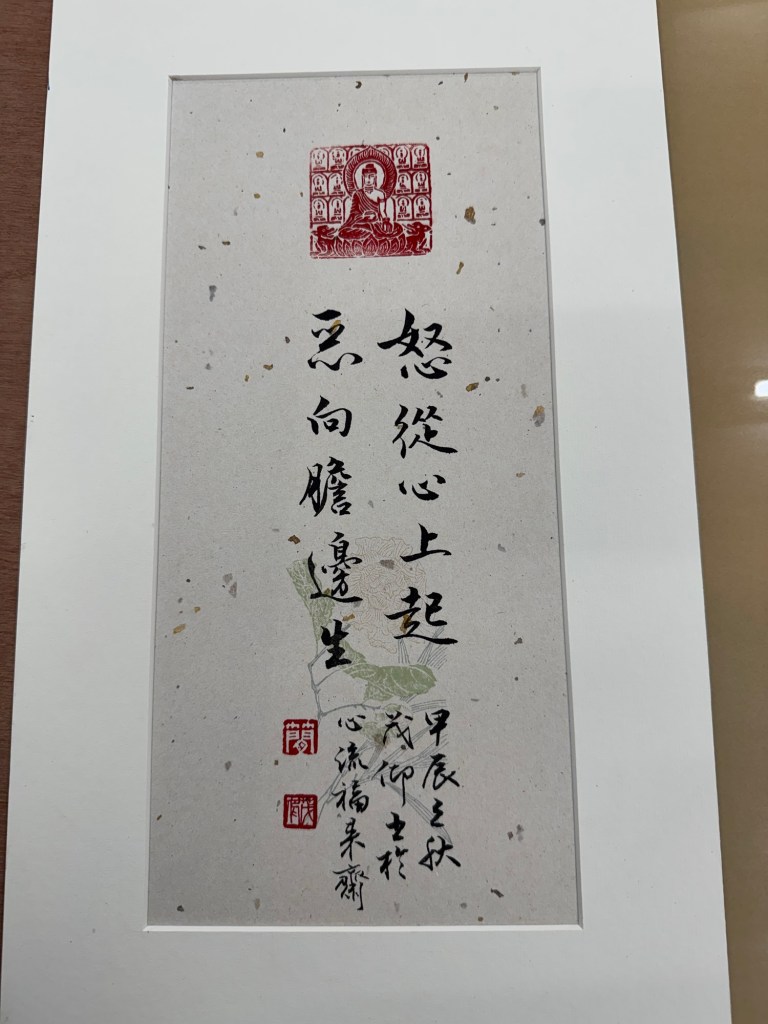 怒從心上起
惡向膽邊生
甲辰之秋
茂仰书於
心流福来齋